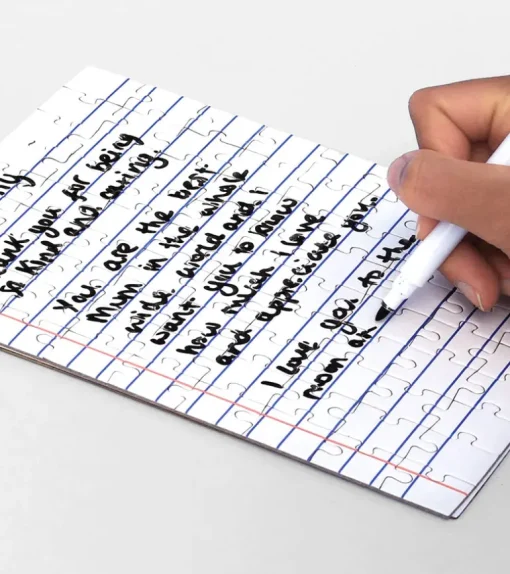 Thank you for being
so kind and caring.
You are the best
Mum in the whole
wide world and i
want you to know
how much i love
and appreciate you.
I love you to the
moon